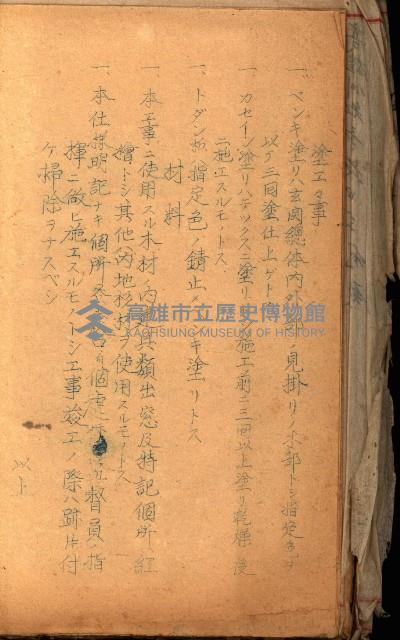 塗工々事
一、ペンキ塗リハ玄関總体内外部ノ見掛リ木部トシ指定色ヲ
以テ三回塗仕上ゲトス
一、カセイン塗リハテックスニ塗リ施工前ニ三回以上塗リ乾燥後
ニ施工スルモノトス
一、トタン板ハ指定色ノ錆止メペンキ塗リトス
材料
一、本工事ニ使用スル木材ノ内建具類出窓及特記個所ハ紅
檜トシ其他内地杉材ヲ使用スルモノトス
一、本仕様明記ナキ個所 督員ノ指
揮ニ做ヒ施工スルモノトシ工事竣工ノ際ハ跡片付
ケ掃除ヲナスベシ
以上
高雄市立歷史博物館
KAOHSIUNG MUSEUM OF HISTORY